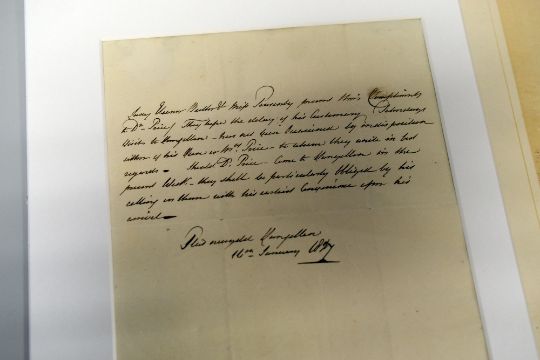 Lady Eleanor Butler & Miss Ponsonby present their Compliments
to Dr. Price, They hope the delay of his Customary Saturdays
Visit to Llangollen - has not been Occasioned by indisposition
either of his Own or Mrs. Price - to whom they unite in best
regards - Should Dr. Price come to Llangollen in the
present Week - they shall be particularly Obliged by his
calling on them with his earliest Convenience upon his
arrival -
Plas newydd Llangollen
16th January